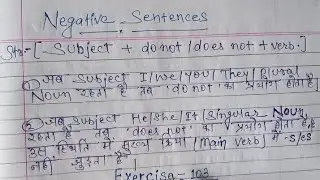 Negative Sentences
Str:- [ Subject + do not / does not + verb. ]
① जब Subject I/we/you/They/Plural
Noun रहता है तब 'do not' का प्रयोग होता है
② जब subject He/she/It/Singular Noun
रहता है तब 'does not' का प्रयोग होता है
उस स्थिति में मुख्य क्रिया (Main verb) में -s/es
नहीं जुड़ता है।
Exercise - 103